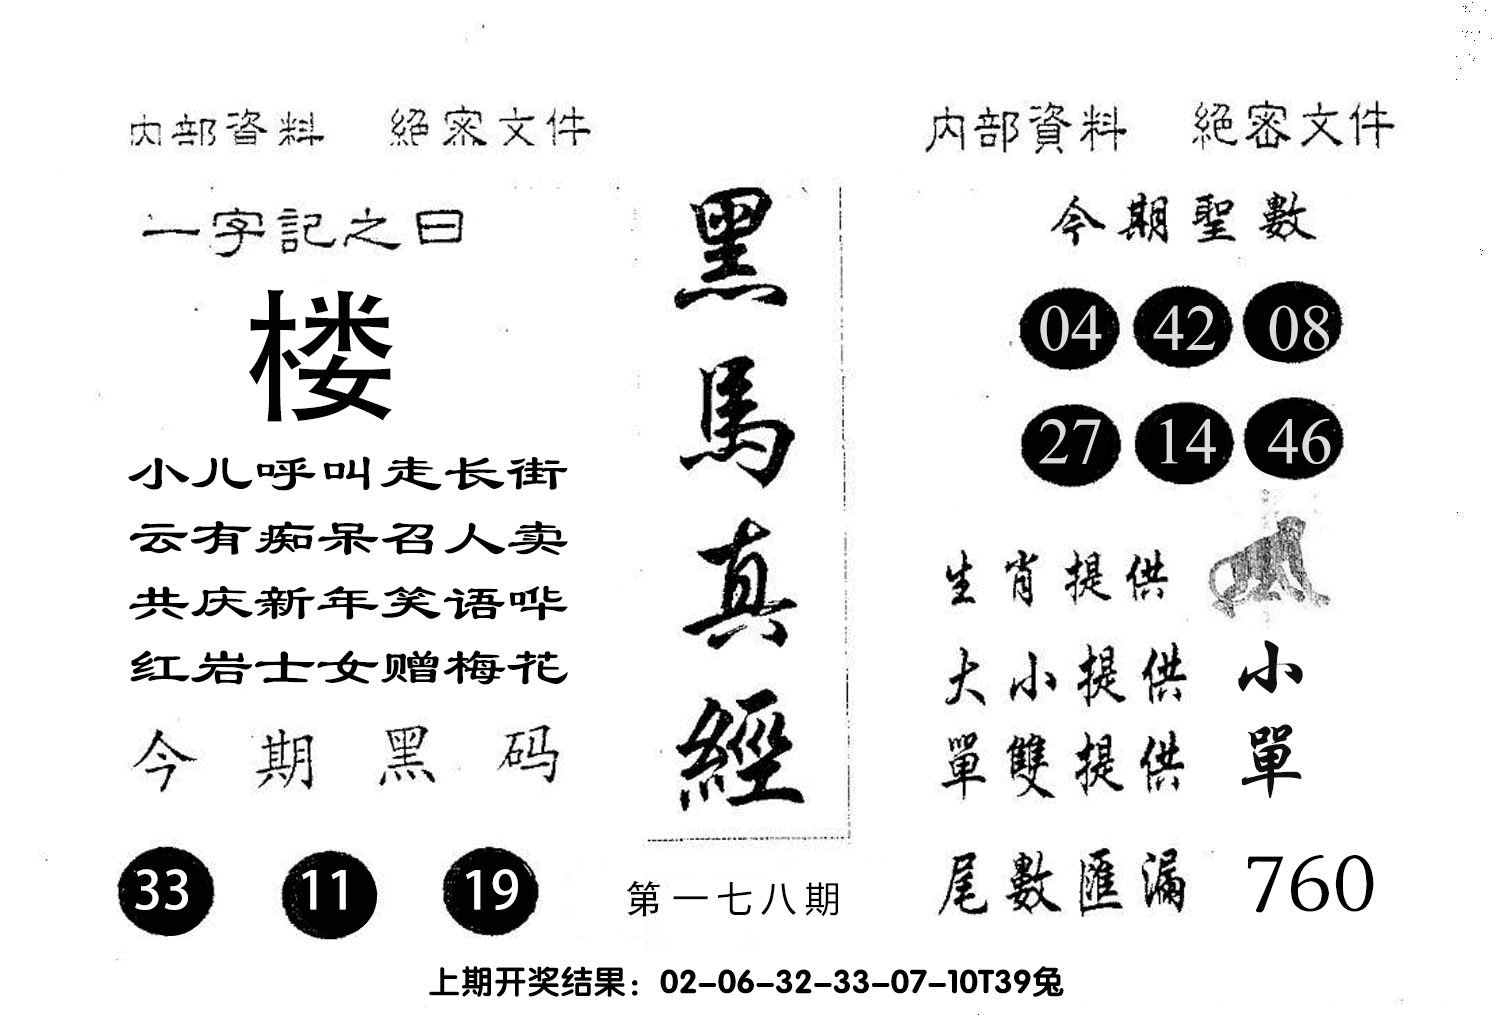 内部資料 絕密文件
一字記之曰
楼
小儿呼叫走长街
云有痴呆召人卖
共庆新年笑语哗
红岩士女赠梅花
今期黑码
33 11 19
黑馬真經
第一七八期
内部資料 絕密文件
今期聖數
04 42 08
27 14 46
生肖提供
大小提供 小
單雙提供 單
尾數匯漏 760
上期开奖结果：02-06-32-33-07-10T39兔